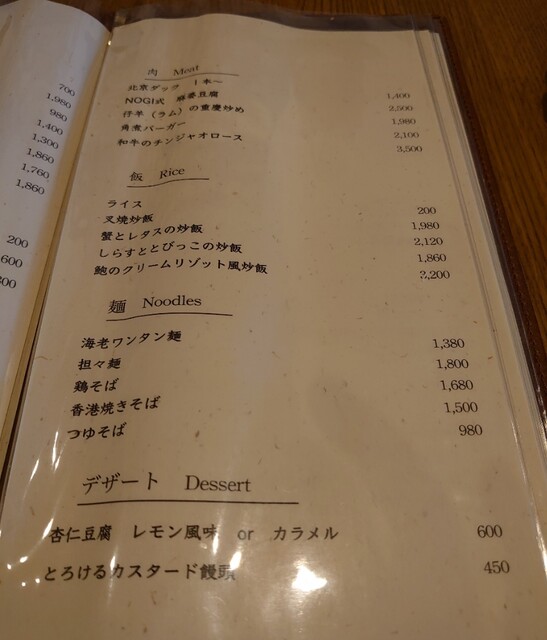 700
1,980
980
1,400
1,300
1,860
1,760
1,860
200
600
肉 Meat
北京ダック 1本〜 1,400
NOGI式 麻婆豆腐 2,500
仔羊(ラム)の重慶炒め 1,980
角煮バーガー 2,100
和牛のチンジャオロース 3,500
飯 Rice
ライス 200
叉焼炒飯 1,980
蟹とレタスの炒飯 2,120
しらすととびっこの炒飯 1,860
鮑のクリームリゾット風炒飯 3,200
麺 Noodles
海老ワンタン麺 1,380
担々麺 1,800
鶏そば 1,680
香港焼きそば 1,500
つゆそば 980
デザート Dessert
杏仁豆腐 レモン風味 or カラメル 600
とろけるカスタード饅頭 450